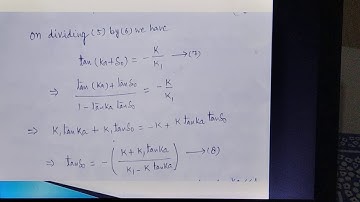 On dividing (5) by (6) we have
tan (Ka+δ₀) = - K/K₁ → (7)
⇒ (tan (Ka) + tan δ₀)/(1 - tan Ka tan δ₀) = - K/K₁
⇒ K₁ tan Ka + K₁ tan δ₀ = -K + K tan Ka tan δ₀
⇒ tan δ₀ = - ((K + K₁ tan Ka)/(K₁ - K tan Ka)) → (8)